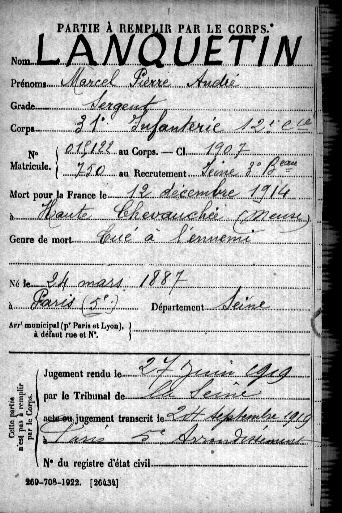 PARTIE À REMPLIR PAR LE CORPS.
Nom LANQUETIN
Prénoms Marcel Pierre André
Grade Sergent
Corps 31e Infanterie 12e Cie
N° Matricule. { 018122 au Corps. — Cl. 1907
750 au Recrutement Seine 3e Beau
Mort pour la France le 12 décembre 1914
à Haute Chevauchée (Meuse)
Genre de mort Tué à l'ennemi
Né le 24 mars 1887
à Paris (5e) Département Seine
Arrt municipal (pr Paris et Lyon), à défaut rue et N°. }
Cette partie n'est pas à remplir par le Corps.
Jugement rendu le 27 Juin 1919
par le Tribunal de la Seine
acte ou jugement transcrit le 24 septembre 1919
à Paris 5e Arrondissement
N° du registre d'état civil
269-708-1922. [26434]